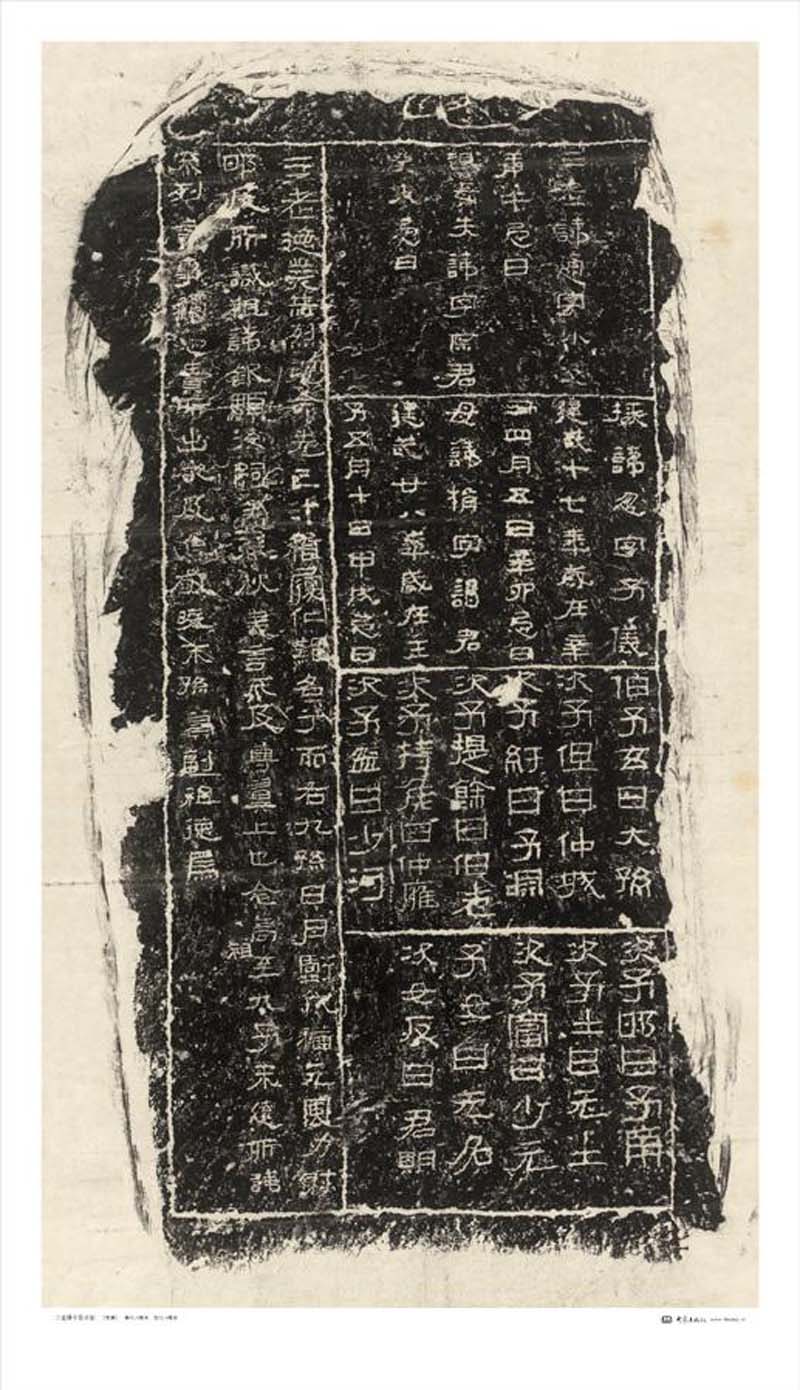 三老諱通字小父
庚午忌日
祖母失諱字宗君
癸未忌日
掾諱忽字子儀
建武十七年歲在辛
丑四月五日辛卯忌日
母諱捐字謁君
建武廿八年歲在壬
子五月十日甲戌忌日
伯子玄曰大孫
次子但曰仲城
次子紆曰子淵
次子提餘曰伯老
次子持侯曰仲雍
次子盈曰少河
次子邯曰子南
次子士曰元士
次子富曰少元
子女曰无名
次女反曰君明
三老德業赫烈克命先己汁稽履仁難名兮而右九孫日月虧代猶元風力射
邯及所識祖諱欽顯後嗣蓋春秋義言不及尊翼上也念高祖至九子未遠所諱
不列言事觸忌貴所出嚴及焦敬曉末孫冀副祖德焉